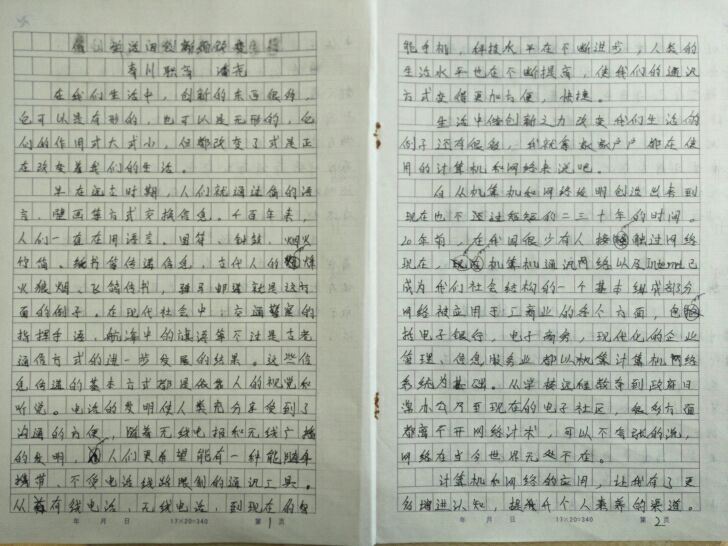 在我们生活中，创新的东西很多，
它可以是有形的，也可以是无形的，它
们的作用或大或小，但都改变了或是正
在改变着我们的生活。
早在远古时期，人们就通过简的语
言、壁画等方式交换信息。千百年来，
人们一直在用语言、图符、钟鼓、烟火
竹简、纸书等传递信息，古代人的烽
火狼烟、飞鸽传书、驿马邮递就是这方
面的例子。在现代社会中，交通警察的
指挥手语、航海中的旗语等不过是古老
通信方式的进一步发展的结果。这些信
息传递的基本方式都是依靠人的视觉和
听觉。电话的发明使人类充分享受到了
沟通的方便，随着无线电报和无线广播
的发明，人们更希望能有一种能随身
携带、不受电话线路限制的通讯工具。
从有线电话、无线电话，到现在的智
年 月 日 17×20=340 第 1 页
能手机，科技水平在不断进步，人类的
生活水平也在不断提高，使我们的通讯
方式变得更加方便，快捷。
生活中像创新之力改变我们生活的
例子还有很多，我就拿家家户户都在使
用的计算机和网络来说吧。
自从计算机和网络发明创造出来到
现在也不过短短的二三十年的时间。
20年前，在我国很少有人接触过网络
现在，计算机通讯网络以及Internet已
成为我们社会结构的一个基本组成部分
网络被应用于工商业的各个方面，包
括电子银行，电子商务，现代化的企业
管理、信息服务业都以计算机网络
系统为基础。从学校远程教育到政府日
常办公乃至现在的电子社区，很多方面
都离不开网络技术，可以不夸张的说，
网络在当今世界无处不在。
计算机和网络的应用，让我有了更
多增进认知，提升个人素养的渠道。
年 月 日 17×20=340 第 2 页